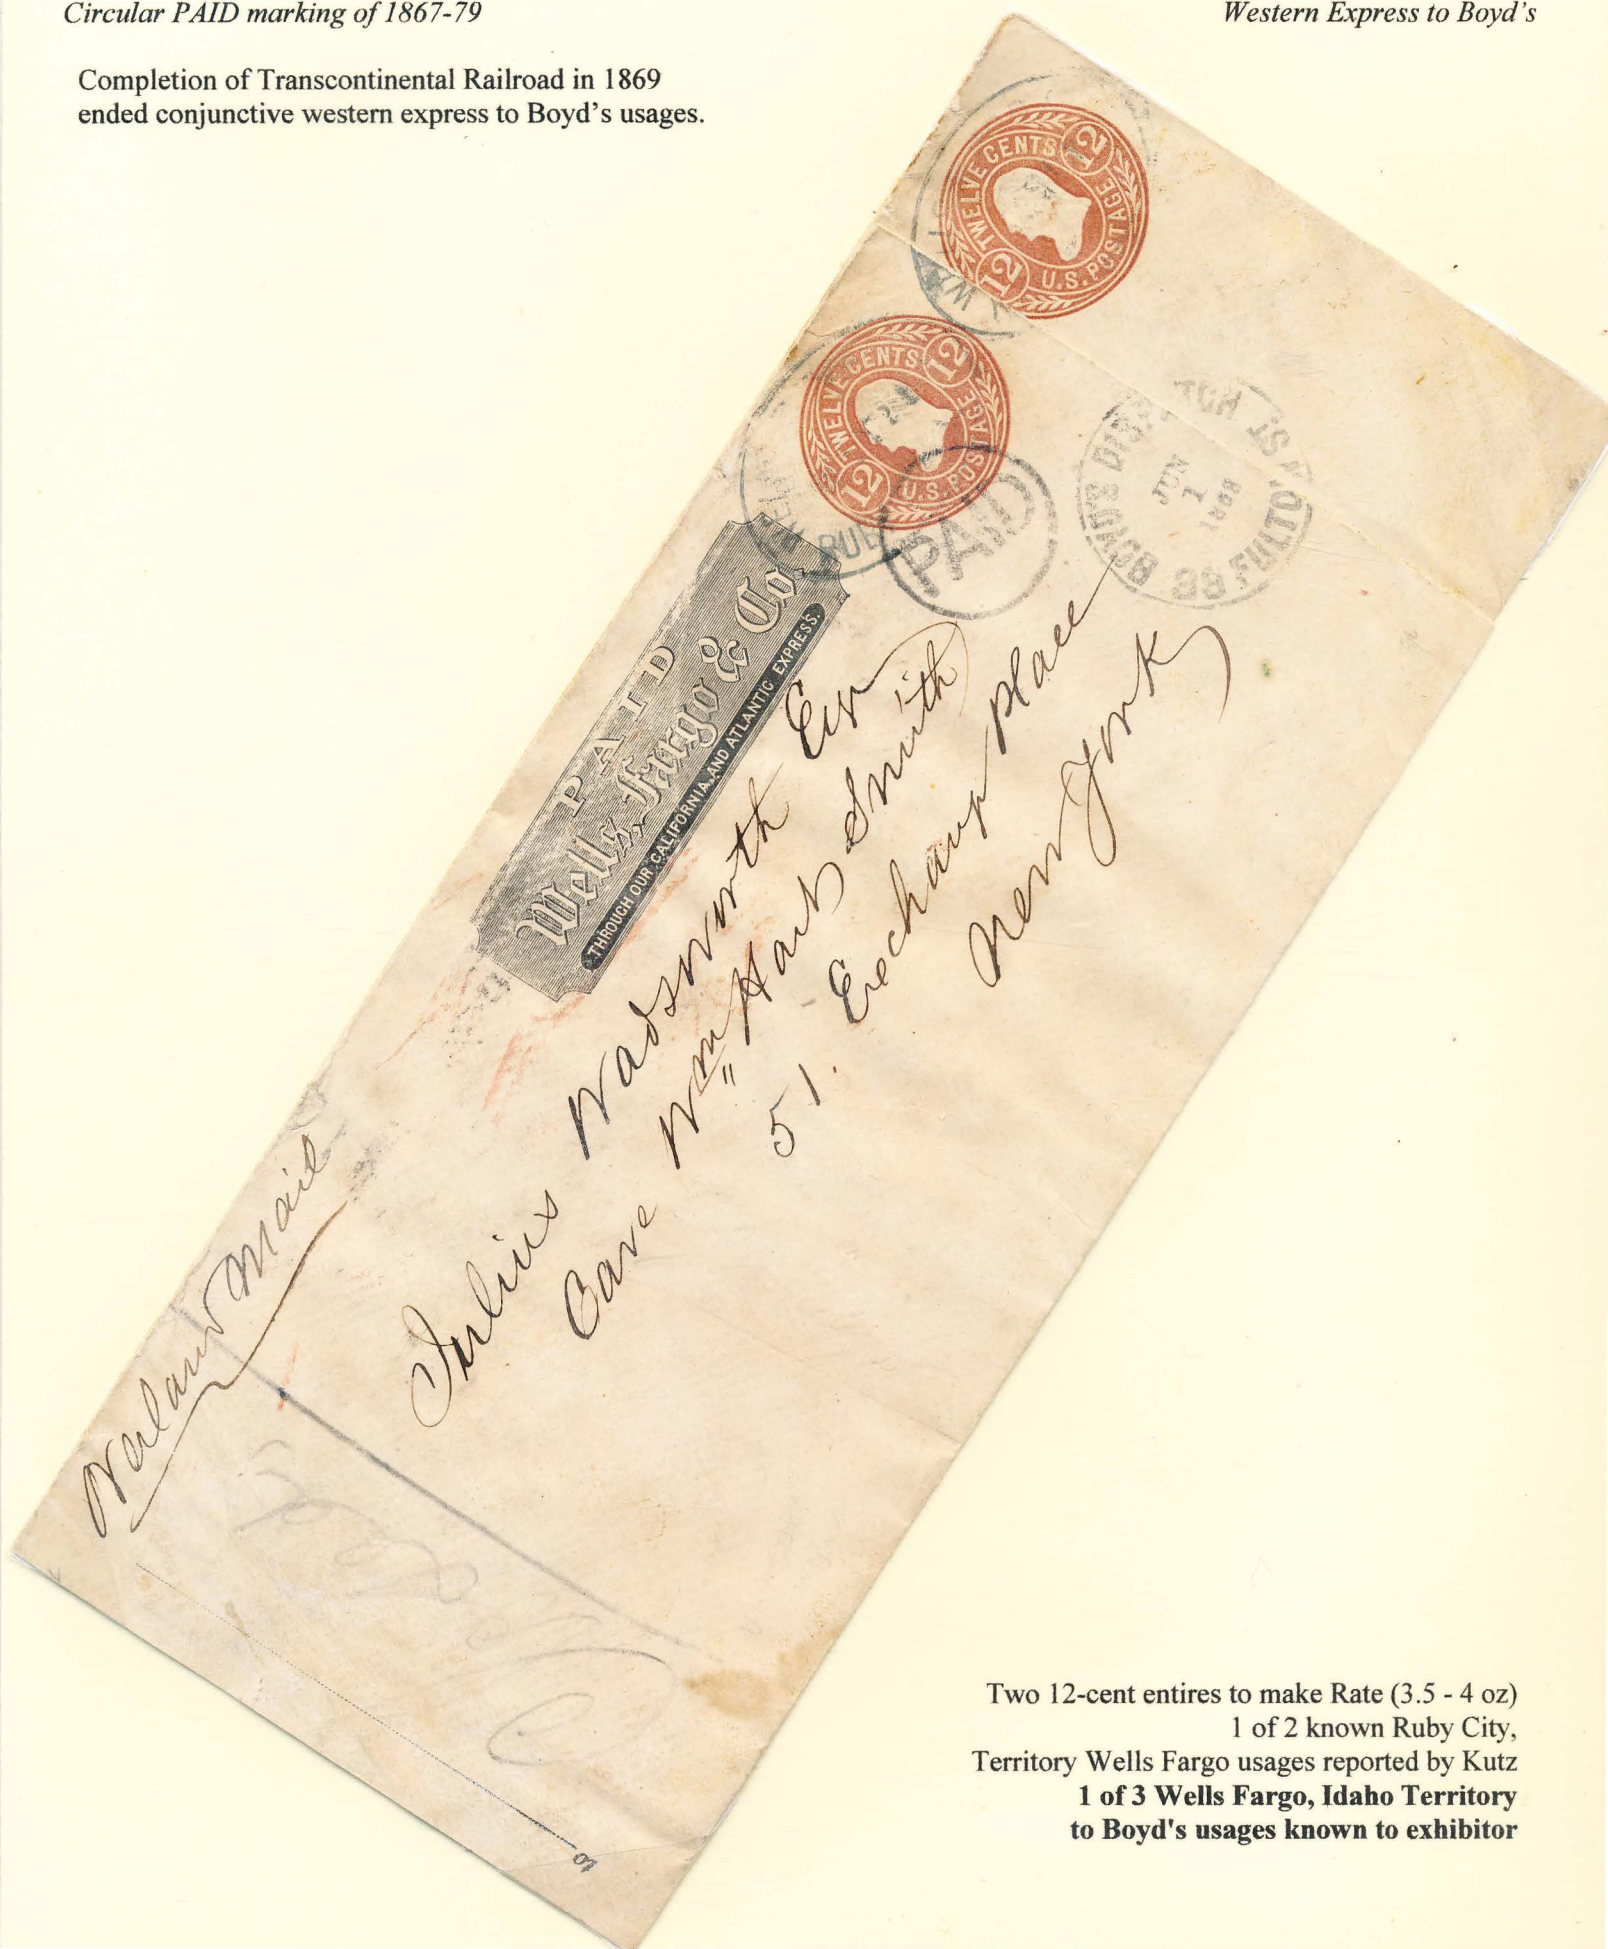 Circular PAID marking of 1867-79
Western Express to Boyd's
Completion of Transcontinental Railroad in 1869
ended conjunctive western express to Boyd's usages.
TWELVE CENTS 12
12 U.S. POSTAGE
TWELVE CENTS 12
12 U.S. POSTAGE
PAID
JUN
1
1868
39 FULTON ST
PAID
Wells, Fargo & Co.
THROUGH OUR CALIFORNIA AND ATLANTIC EXPRESS.
Overland Mail
Julius Wadsworth
Care Wm Hart Smith
51. Exchange Place
New York
to
Two 12-cent entires to make Rate (3.5 - 4 oz)
1 of 2 known Ruby City,
Territory Wells Fargo usages reported by Kutz
1 of 3 Wells Fargo, Idaho Territory
to Boyd's usages known to exhibitor